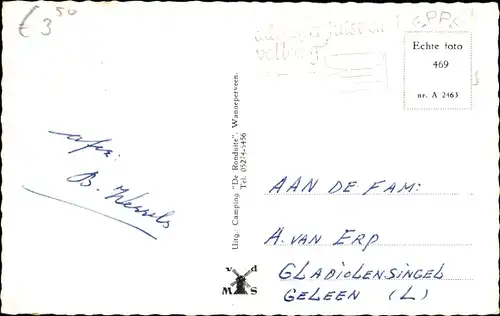 € 3 50
EPPE
Echte foto
469
nr. A 2463
afz:
B. Wessels
Uitg.: Camping "De Ronduite", Wanneperveen.
Tel. 05224-5456
v d
M S
AAN DE FAM:
A. VAN ERP
GLADIOLENSINGEL
GELEEN (L)